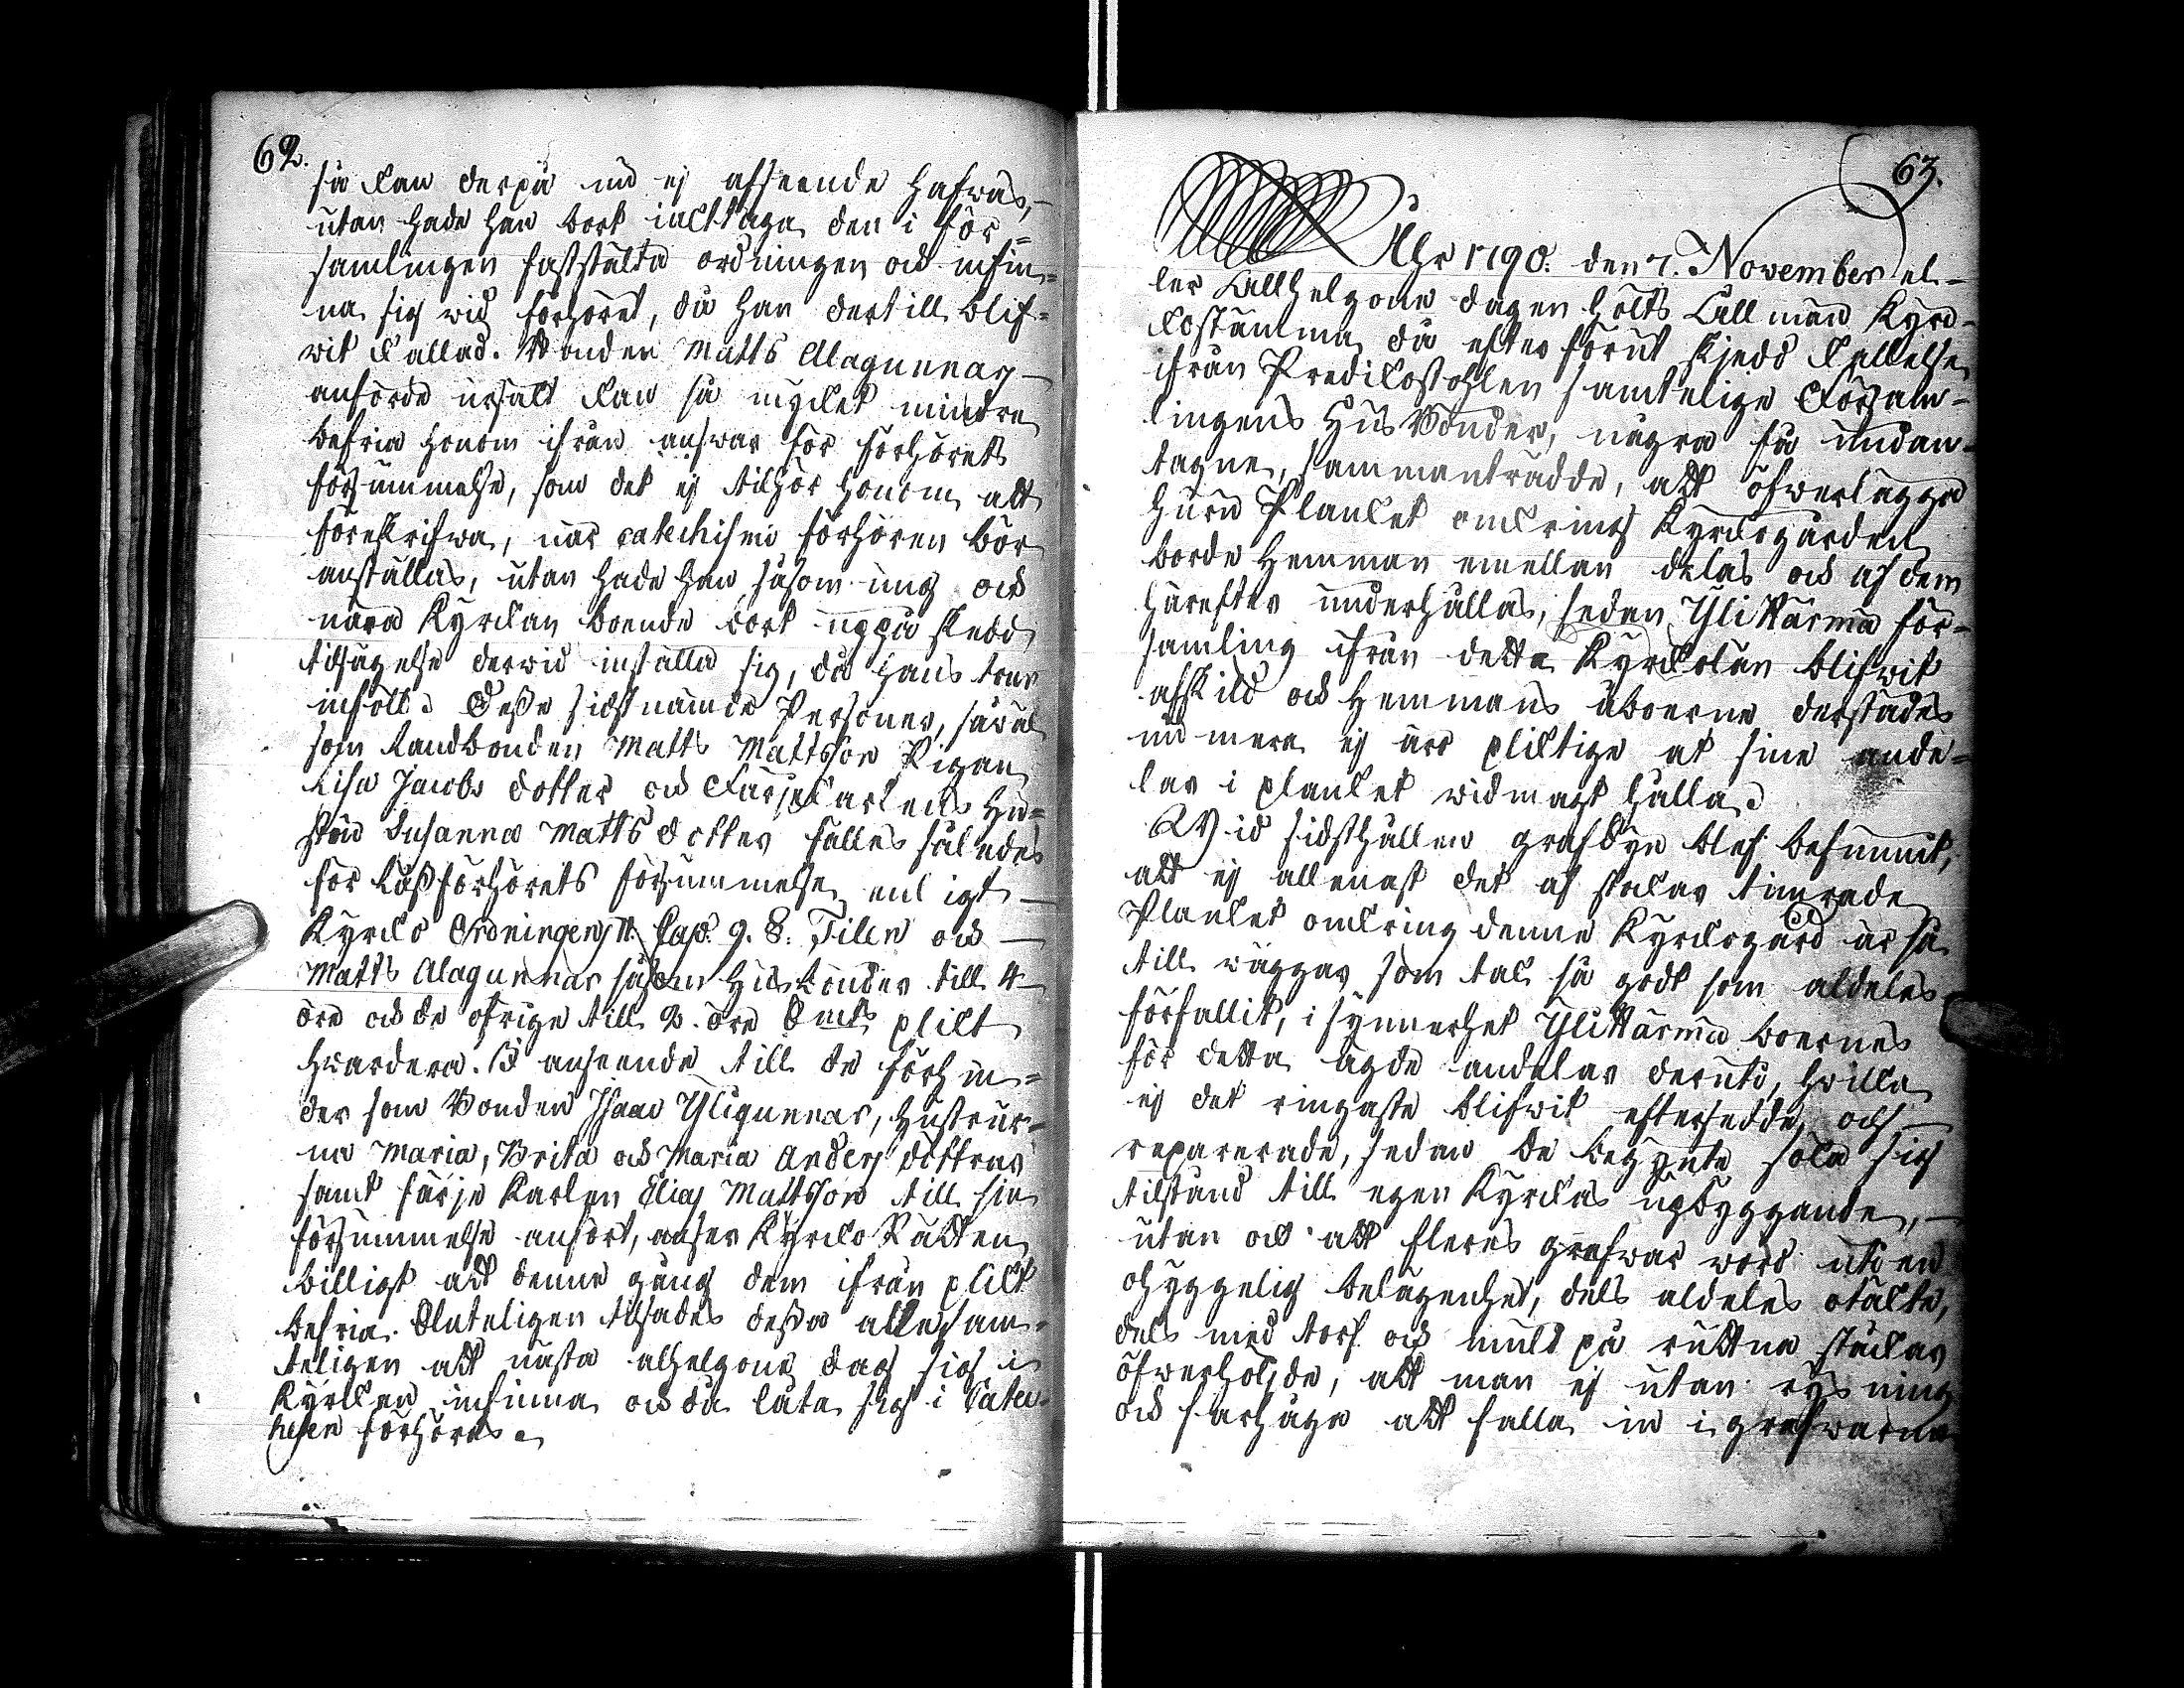 62.
så kan derpå nu ej afseende hafwas,
utan hade han bort iakttaga den i för-
samlingen faststälta ordningen och infin-
na sig wid förhöret, då han dertill blif-
wit kallad. Bonden Matts Alagunnas
anförde ursäkt kan så mycket mindre
befria honom ifrån answar för förhörets
försummelse, som det ej tilhör honom att
föreskrifwa, när catechismi förhören bör
anställas, utan hade han såsom ung och
nära Kyrckan boende bort uppå skedd
tilsägelse derwid inställa sig, då hans tour
inföll. Desse sidstnämde Personer, såwäl
som Landbonden Matts Mattsson Pigan
Lisa Jacobs dotter och Färjekarlens Hu-
stru Susanna Matts dotter fälles således
för Läseförhörets försummelse enligt
Kyrcko Ordningens 11. Cap. 9. §. Tilen och
Matts Alagunnas såsom Husbonde till 4
öre och de öfrige till 2. öre Smts plikt
hwardera. I anseende till de förhin-
der som Bonden Isaac Yligunnas, hustrur-
na Maria, Brita och Maria Anders döttrar
samt färje Karlen Elias Mattsson till sin
försummelse anfört, anser Kyrcko Rätten
billigt att denne gång dem ifrån plikt
befria. Sluteligen tilsades dessa allesam-
teligen att nästa alhelgone dag sig i
Kyrckan infinna och då låta sig i Catec-
hesen förhöras.
63.
Åhr 1790. den 7. November el-
ler Allhelgone dagen hölts Allmän Kyrc-
kostämma, då efter förut skjedd kallelse
ifrån Predikostohlen samtelige Församb-
lingens HusBönder, några få undan-
tagne, sammanträdde, att öfwerlägga
huru Plancket omkring Kyrckogården
borde Hemman emellan delas och af dem
härefter underhållas, sedan YliKärma för-
samling ifrån detta Kyrckolän blifwit
afskild och Hemmans åboerne derstädes
nu mera ej äro pliktige at sine ande-
lar i plancket widmagt hålla.
Wid sidsthållen grafsyn blef befunnit,
att ej allenast det af stockar timrade
Plancket omkring denne Kyrckogård är så
till wäggar som tak så godt som aldeles
förfallit, i synnerhet YliKärma boernes
för detta ägde andelar deruti, hwilka
ej det ringaste blifwit eftersedde och
reparerade, sedan de begynte söka sig
tilstånd till egen Kyrckas upbyggande,
utan och att fleres grafwar woro uti en
ohyggelig belägenhet, dels aldeles otäkte,
dels med torf och mull på ruttna stäckar
öfwerhöljde, att man ej utan rysning
och farhåga att falla in i grafwarne